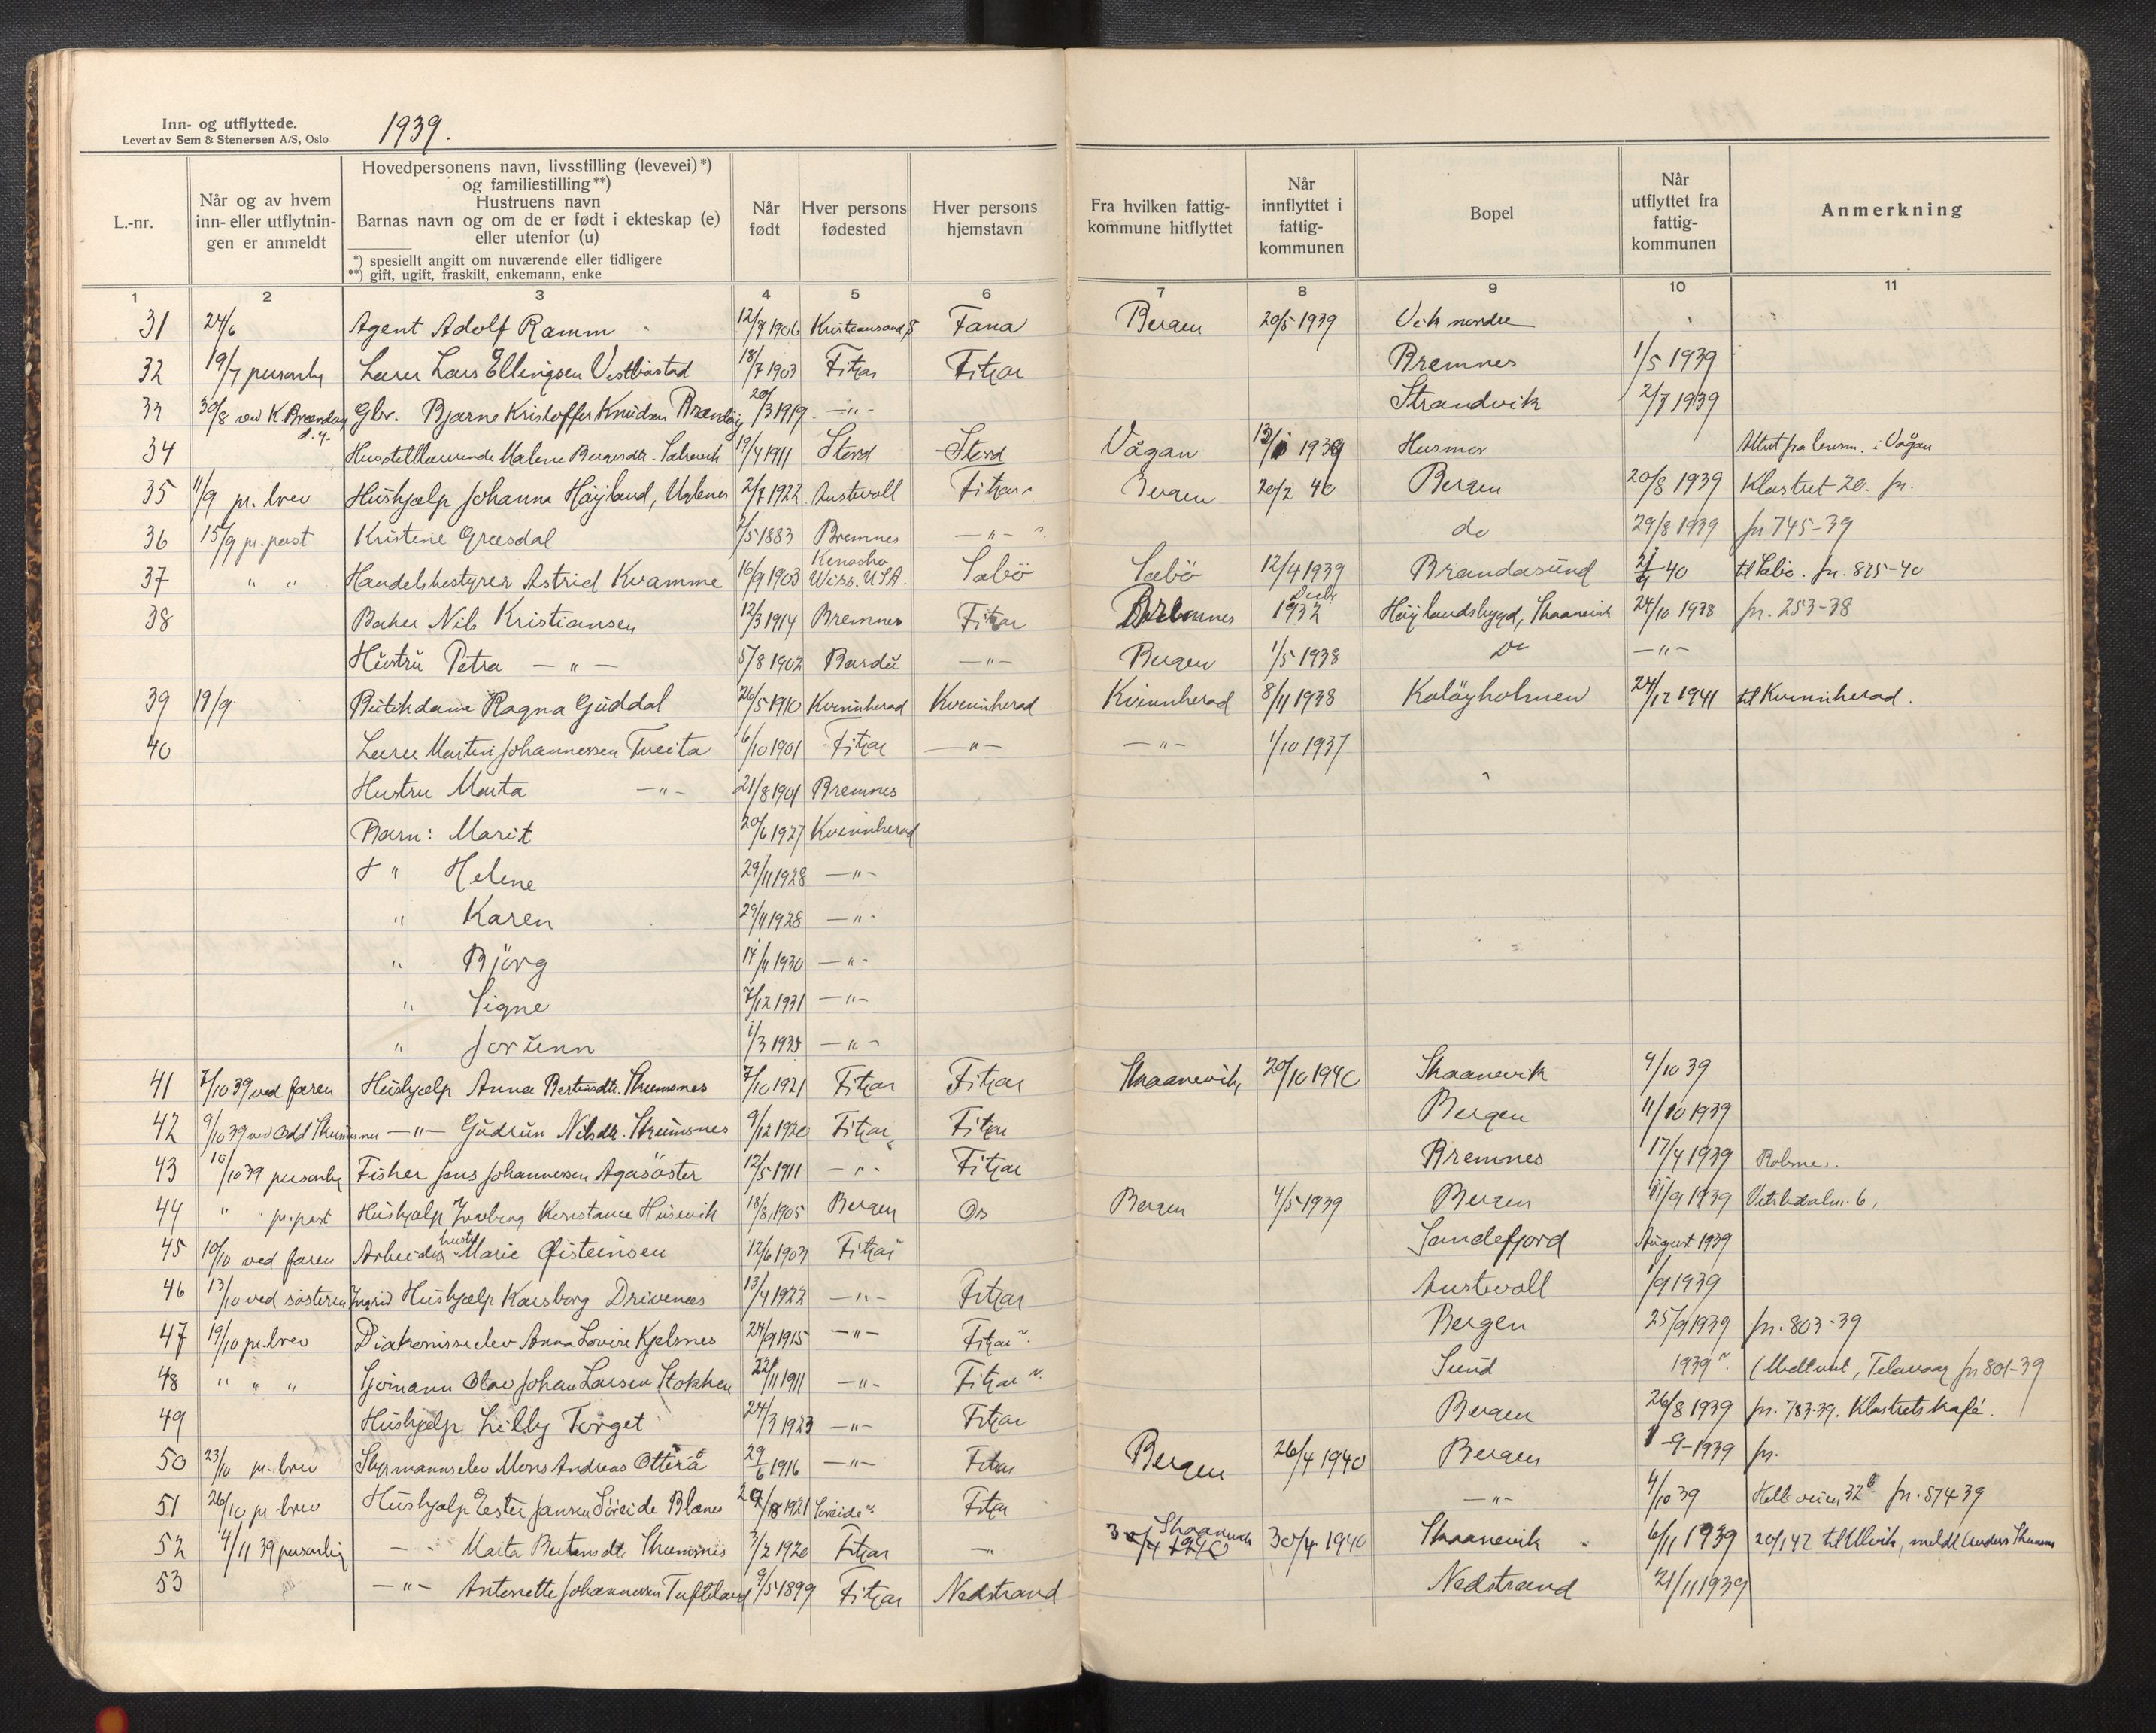 Inn- og utflyttede.
Levert av Sem & Stenersen A/S, Oslo
1939.
L.-nr.
Når og av hvem inn- eller utflytnin- gen er anmeldt
Hovedpersonens navn, livsstilling (levevei)*) og familiestilling**)
Hustruens navn
Barnas navn og om de er født i ekteskap (e) eller utenfor (u)
*) spesiellt angitt om nuværende eller tidligere
**) gift, ugift, fraskilt, enkemann, enke
Når født
Hver persons fødested
Hver persons hjemstavn
Fra hvilken fattig- kommune hitflyttet
Når innflyttet i fattig- kommunen
Bopel
Når utflyttet fra fattig- kommunen
Anmerkning
1 2 3 4 5 6 7 8 9 10 11
31 24/6 Agent Adolf Ramm 12/7 1906 Kristiansand S Fana Bergen 20/5 1939 Vik nordre
32 19/7 personlig Lærer Lars Ellingsen Vestbøstad 18/7 1903 Fitjar Fitjar Bremnes 1/5 1939
33 30/8 ved K. Brandøy d.y. Gbr. Bjarne Kristoffer Knudsen Brandøy 20/3 1919 —"— Strandvik 2/7 1939
34 Husstellærerinde Malene Bergesdtr. 19/4 1911 Stord Stord Vågan 1939 Husmor Attest fra lensm. i Vågan
35 11/9 pr. brev Hushjælp Johanna Høyland, 2/7 1922 Austevoll Fitjar Bergen 20/2 40 Bergen 20/8 1939 Klostret 20. jnr.
36 15/9 pr. post Kristine Græsdal 2/5 1883 Bremnes —"— do 29/8 1939 jnr 745-39
37 " " Handelsbestyrer Astrid Kvamme 16/9 1903 Kenosha Wiss. USA. Sæbö Sæbö 12/4 1939 Brandasund 40 til Sæbö. jnr. 825-40
38 Baker Nils Kristiansen 12/3 1914 Bremnes Fitjar Bremnes 1932 Høylandsbygd, Skaanevik 24/10 1938 jnr. 253-38
Hustru Petra —"— 5/8 1902 Bardu —"— Bergen 1/5 1938 Do —"—
39 19/9 Butikdame Ragna Guddal 26/5 1910 Kvinnherad Kvinnherad Kvinnherad 8/11 1938 Koløyholmen 24/12 1941 til Kvinnherad.
40 Lærer Martin Johannessen Tveita 6/10 1901 Fitjar —"— —"— 1/10 1937
Hustru Marta —"— 21/8 1901 Bremnes
Barn: Marit 20/6 1927 Kvinnherad
" Helene 29/11 1928 —"—
" Karen 29/11 1928 —"—
" Björg 14/4 1930 —"—
" Signe 7/12 1931 —"—
" Jorunn 1/3 1935 —"—
41 7/10 39 ved faren Hushjælp Anna Bertinsdtr. Strumsnes 7/10 1921 Fitjar Fitjar Skaanevik 20/10 1940 Skaanevik 9/10 39
42 9/10 39 ved Odd Strumsnes —"— Gudrun Nilsdtr. Strumsnes 9/12 1920 Fitjar Fitjar Bergen 11/10 1939
43 10/10 39 personlig Fisker Jens Johannessen Agasöster 12/5 1911 —"— Fitjar Bremnes 17/4 1939
44 " " pr. post Hushjælp Ingeborg Konstance Husevik 18/8 1905 Bergen Os Bergen 4/5 1939 Bergen 11/9 1939
45 10/10 ved faren Arbeider hustr. Marie Øisteinsen 12/6 1903 Fitjar Sandefjord August 1939
46 13/10 ved søsteren Ingrid Hushjælp Karsborg Drivenes 13/4 1922 —"— Fitjar Austevoll 1/9 1939
47 19/10 pr. brev Diakonisseelev Anna Lovise Kjelsnes 24/9 1915 —"— Fitjar Bergen 25/9 1939 jnr. 803-39
48 " " " Sjömann Olav Johan Larsen Stokken 22/11 1911 —"— Fitjar Sund 1939 Telavaag jnr 801-39
49 Hushjælp Lilly Torget 24/3 1923 —"— Fitjar Bergen 26/8 1939 jnr. 783-39. Klostrets kafé.
50 23/10 pr. brev Styrmannselev Mons Andreas Otterå 29/6 1916 —"— Fitjar Bergen 26/4 1940 Bergen 1-9-1939 jnr.
51 26/10 pr. brev Hushjælp Ester Jansen Söreide Blænes 1921 Söreide Fitjar —"— 4/10 39 Helleveien 32 b. jnr. 874 39
52 4/11 39 personlig —"— Marta Bertinsdtr. Strumsnes 3/2 1920 Fitjar —"— Skaanevik 30/4 1940 30/4 1940 Skaanevik 6/11 1939 20/1 42 til Ulvik, meldt Anders Strumsnes
53 " —"— Antonette Johannessen Tufteland 9/5 1899 Fitjar Nedstrand Nedstrand 21/11 1939